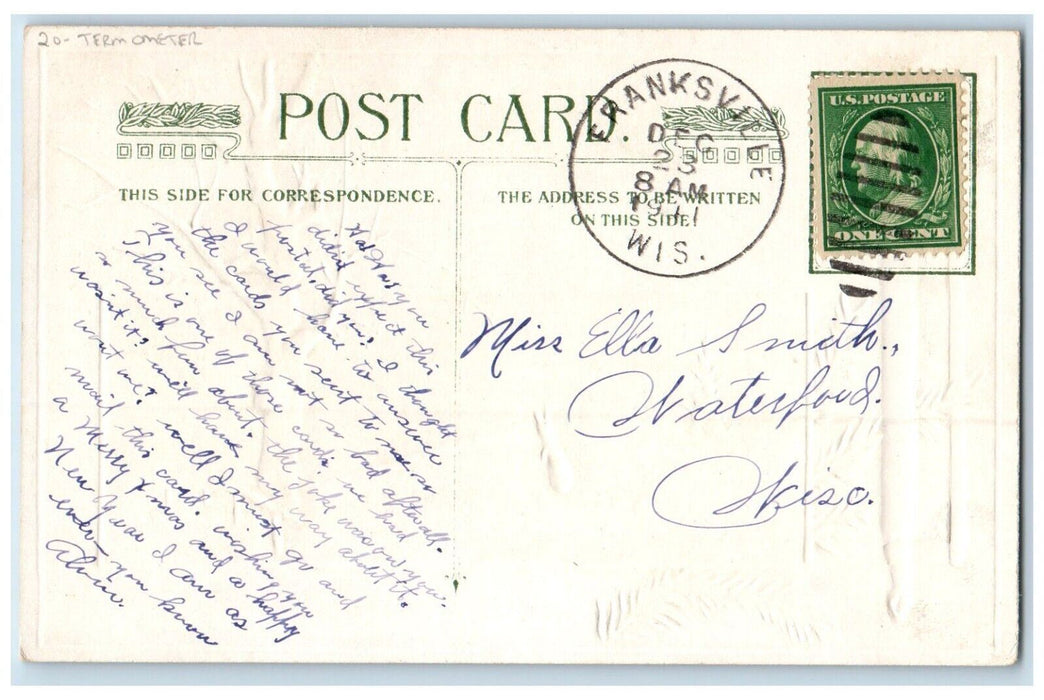 20- TERMOMETER
POST CARD.
THIS SIDE FOR CORRESPONDENCE.
THE ADDRESS TO BE WRITTEN
ON THIS SIDE.
FRANKSVILLE
DEC
23
8 AM
1911
WIS.
U.S. POSTAGE
ONE CENT
Miss Ella Smith.,
Waterford.
Wisc.
you
didn't expect this
postal, did you? I thought
I would have to answer
the cards you sent to me, so
you see I am not so bad afterall.
This is one of those cards we had
so much fun about. the Joke was on you.
wasn't it? we'll have my way about it.
wont we? well I must go and
mail this card. wishing you
a Merry Xmas and a happy
New Year I am as
ever- you know
Alvin.